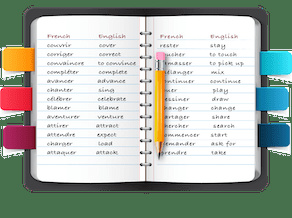 French English
couvrir cover
corriger correct
convaincre to convince
compléter complete
avancer advance
chanter sing
célébrer celebrate
blamer blame
aventurer venture
attirer attract
attendre expect
charger load
attaquer attack
French English
rester stay
oucher to touch
masser to pick up
élanger mix
ntinuer continue
uer play
essiner draw
hanger change
artager share
hercher search
ommencer start
emander ask for
rendre take